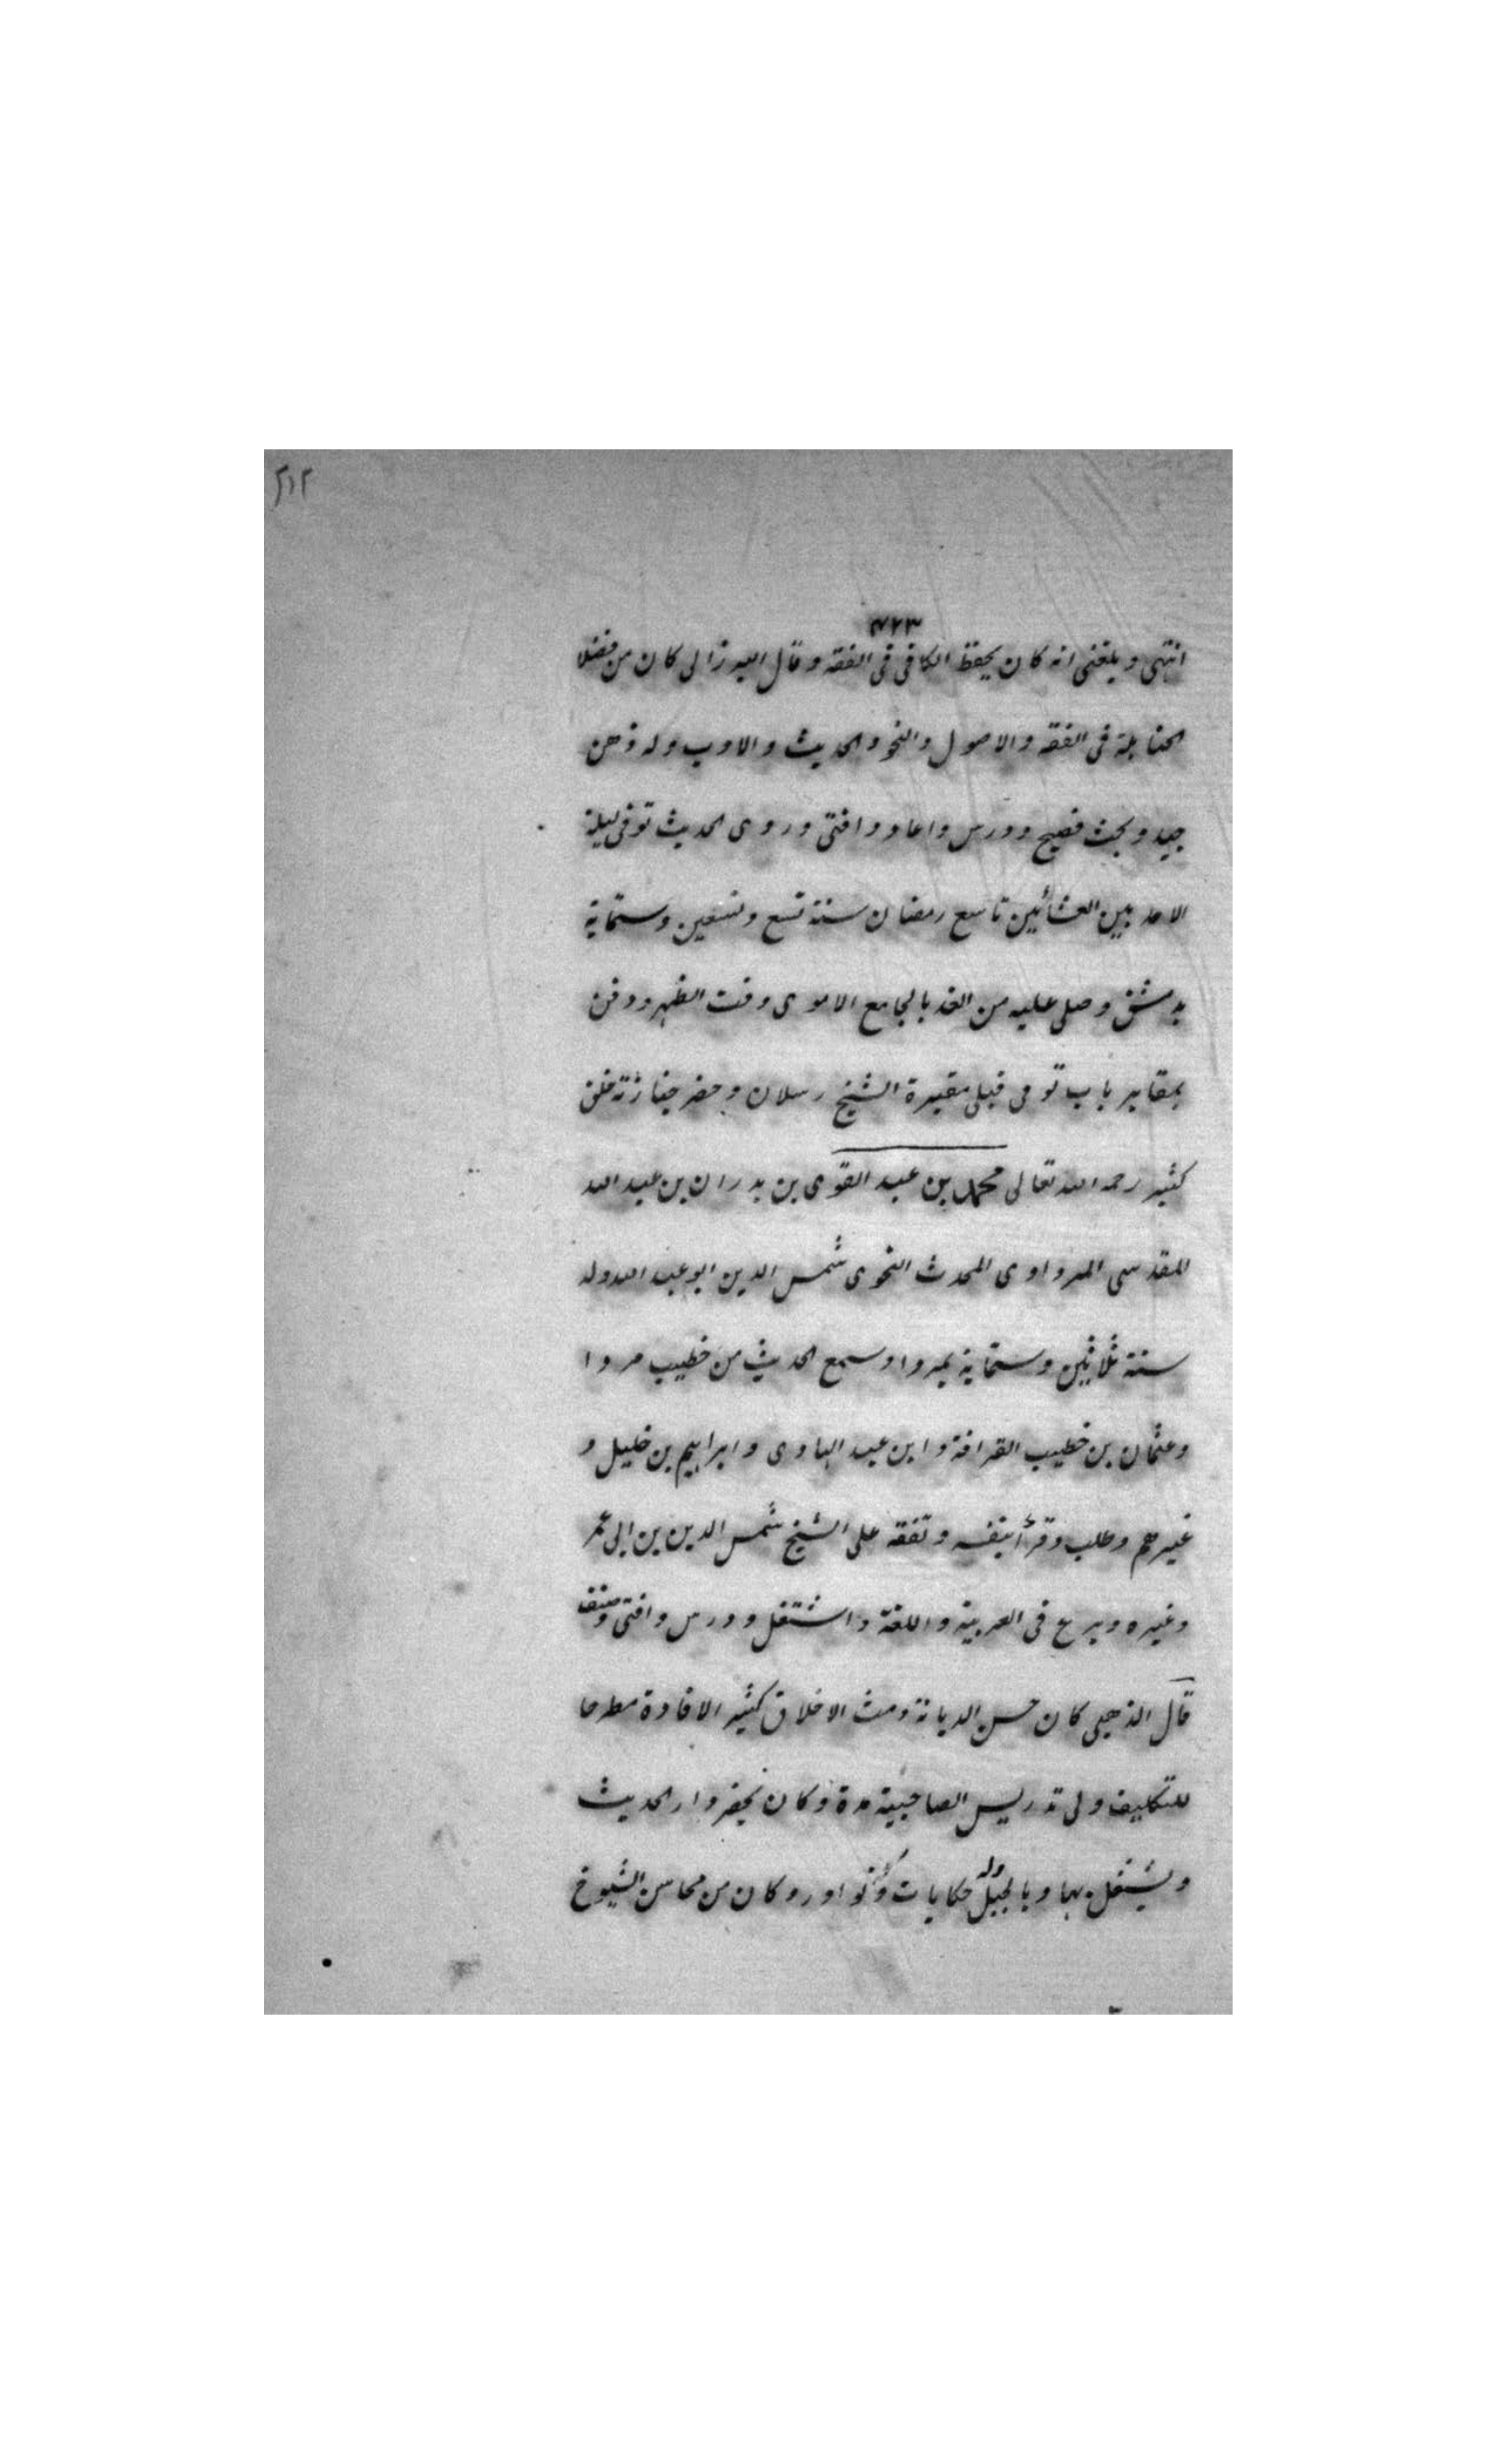 ٢١٢
٤٢٣
انتهى وبلغنى انه كان يحفظ الكافى فى الفقه وقال البرزالى كان من فضلا
الحنابلة فى الفقه والاصول والنحو والحديث والادب وله ذهن
جيد وبحث فصيح ودرس واعاد وافتى وروى الحديث توفى ليلة
الاحد بين العشائين تاسع رمضان سنة تسع وتسعين وستماية
بدمشق وصلى عليه من الغد بالجامع الاموى وقت الظهر ودفن
بمقابر باب تومى قبلى مقبرة الشيخ رسلان وحضر جنازته خلق
كثير رحمه الله تعالى محمد بن عبد القوى بن بدران بن عبد الله
المقدسى المرداوى المحدث النحوى شمس الدين ابو عبد الله ولد
سنة ثلاثين وستماية بمردا وسمع الحديث من خطيب مردا
وعثمان بن خطيب القرافة وابن عبد الهادى وابراهيم بن خليل و
غيرهم وطلب وقرأ بنفسه وتفقه على الشيخ شمس الدين بن ابى عمر
وغيره وبرع فى العربية واللغة واشتغل ودرس وافتى وصنف
قال الذهبى كان حسن الديانة دمث الاخلاق كثير الافادة مطرحا
للتكليف ولى تدريس الصاحبية مدة وكان يحضر دار الحديث
ويشتغل بها وبالجبل وله حكايات ونوادر وكان من محاسن الشيوخ